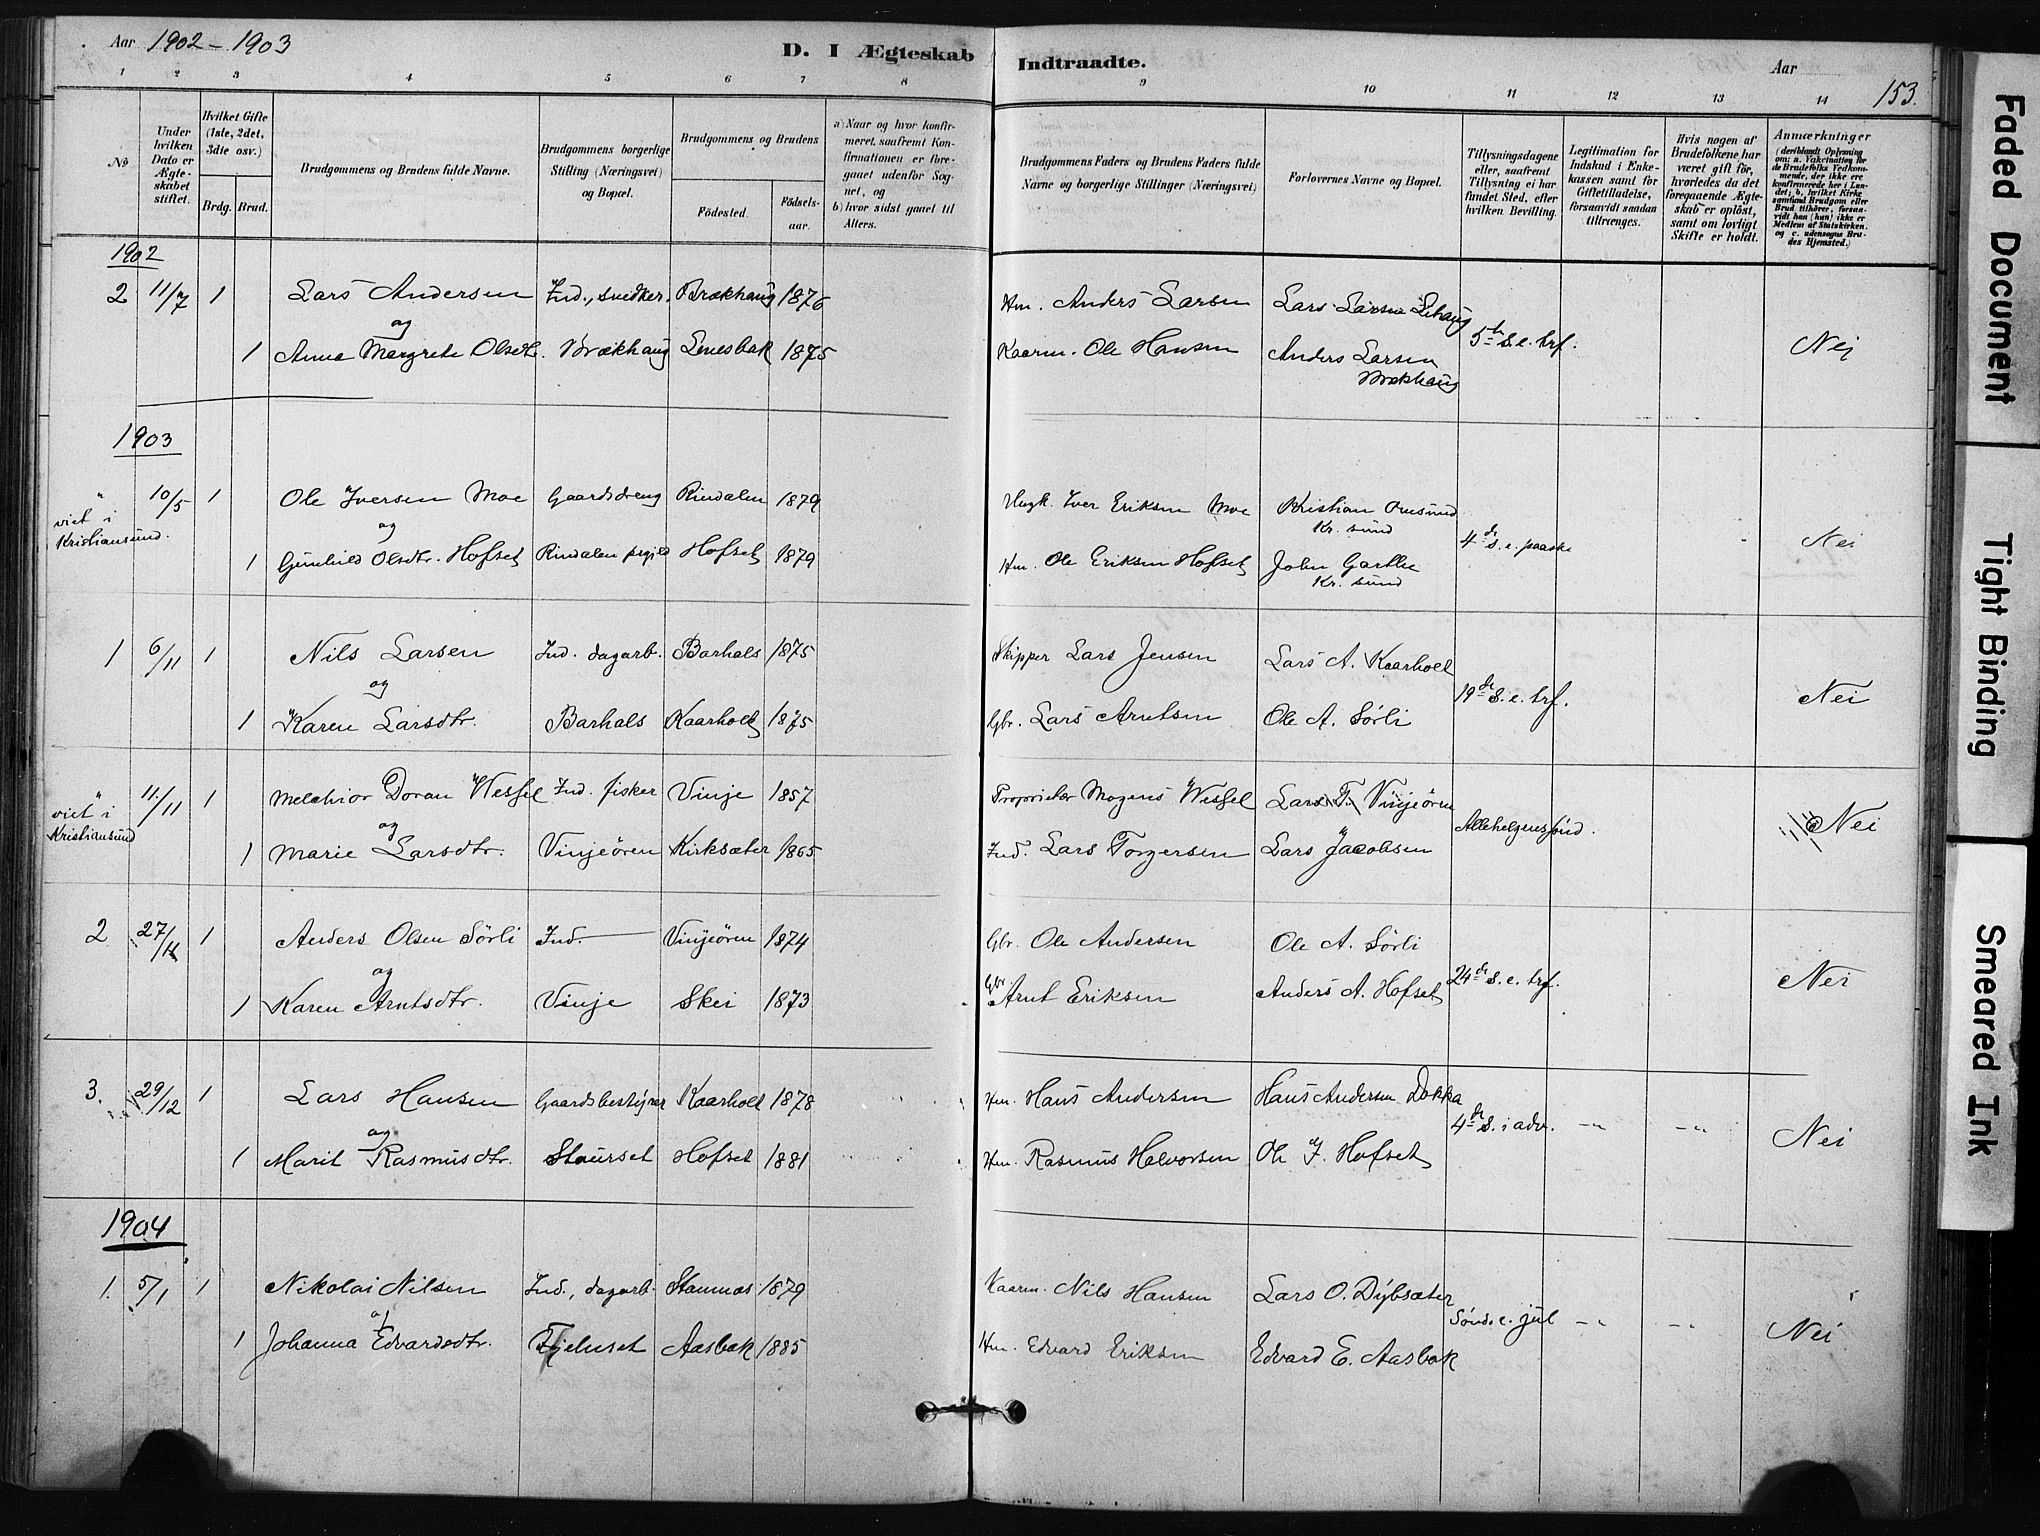 Aar 1902-1903
D. I Ægteskab Indtraadte.
Aar
153.
1 2 3 4 5 6 7 8 9 10 11 12 13 14
No
Under hvilken Dato er Ægteskabet stiftet.
Hvilket Gifte (1ste, 2det, 3die osv.)
Brdg. Brud.
Brudgommens og Brudens fulde Navne.
Brudgommens borgerlige Stilling (Næringsvei) og Bopæl.
Brudgommens og Brudens
Fødested. Fødselsaar.
a) Naar og hvor konfirmeret, saafremt Konfirmationen er foregaaet udenfor Sognet, og
b) hvor sidst gaaet til Alters.
Brudgommens Faders og Brudens Faders fulde Navne og borgerlige Stillinger (Næringsvei)
Forlovernes Navne og Bopæl.
Tillysningsdagene eller, saafremt Tillysning ei har fundet Sted, efter hvilken Bevilling.
Legitimation for Indskud i Enkekassen samt for Giftetilladelse, forsaavidt saadan tiltrænges.
Hvis nogen af Brudefolkene har været gift før, hvorledes da det foregaaende Ægteskab er opløst, samt om lovligt Skifte er holdt.
Anmærkninger (deriblandt Oplysning om: a. Vaksinationen for de Brudefolks Vedkommende, der ikke ere konfirmerede her i Landet; b. hvilket Kirkesamfund Brudgom eller Brud tilhører, forsaavidt han (hun) ikke er Medlem af Statskirken. og c. udensogns Brudes Hjemsted.)
1902
2 11/7 1 Lars Andersen Ind., snedker. Brækhaug 1876 Hm. Anders Larsen Lars Larsen Lihaug
og
1 Anna Margrete Olsdtr. Brækhaug Lenesbak 1875 Kaarm. Ole Hansen Anders Larsen Brækhaug 5te S. e. trf. Nej
1903
" 10/5 1 Ole Iversen Moe Gaardsdreng Rindalen 1879 Hugk. Iver Eriksen Moe Kristian Omsund Kr. sund
viet i Kristiansund.
og
1 Gunhild Olsdtr. Hofset Rindalen prgjld Hofset 1879 Hm. Ole Eriksen Hofset John Garthe Kr. sund 4de S. e. paaske Nei
1 6/11 1 Nils Larsen Ind. dagarb. Barhals 1875 Skipper Lars Jensen Lars A. Kaarhoel
og
1 Karen Larsdtr. Barhals Kaarhoel 1875 Gbr. Lars Arntsen Ole A. Sørli 19de S. e. trf. Nei
" 11/11 1 Melchior Doran Wessel Ind. fisker Vinje 1857 Proprietær Mogens Wessel Lars T. Vinjeøren
viet i Kristiansund
og
1 Marie Larsdtr. Vinjeøren Kirksæter 1865 Ind. Lars Torgersen Lars Jacobsen Allehelgenssønd. Nei
2 27/11 1 Anders Olsen Sørli Ind. Vinjeøren 1874 Gbr. Ole Andersen Ole A. Sørli
og
1 Karen Arntsdtr. Vinje Skei 1873 Gbr. Arnt Eriksen Anders A. Hofset 24de S. e. trf. Nei
3. 29/12 1 Lars Hansen Gaardsbestyrer Kaarhoel 1878 Hm. Hans Andersen Hans Andersen Dokka
og
1 Marit Rasmusdtr. Staurset Hofset 1881 Hm. Rasmus Halvorsen Ole J. Hofset 4de S. i adv. -"- -"- Nei
1904
1. 5/1 1 Nikolai Nilsen Ind., dagarb. Stamnæs 1879 Kaarm. Nils Hansen Lars O. Dybsæter
og
1 Johanna Edvardsdtr. Fjeluset Aasbak 1885 Hm. Edvard Eriksen Edvard E. Aasbak Sønd. e. jul -"- -"- Nei
Faded Document
Tight Binding
Smeared Ink